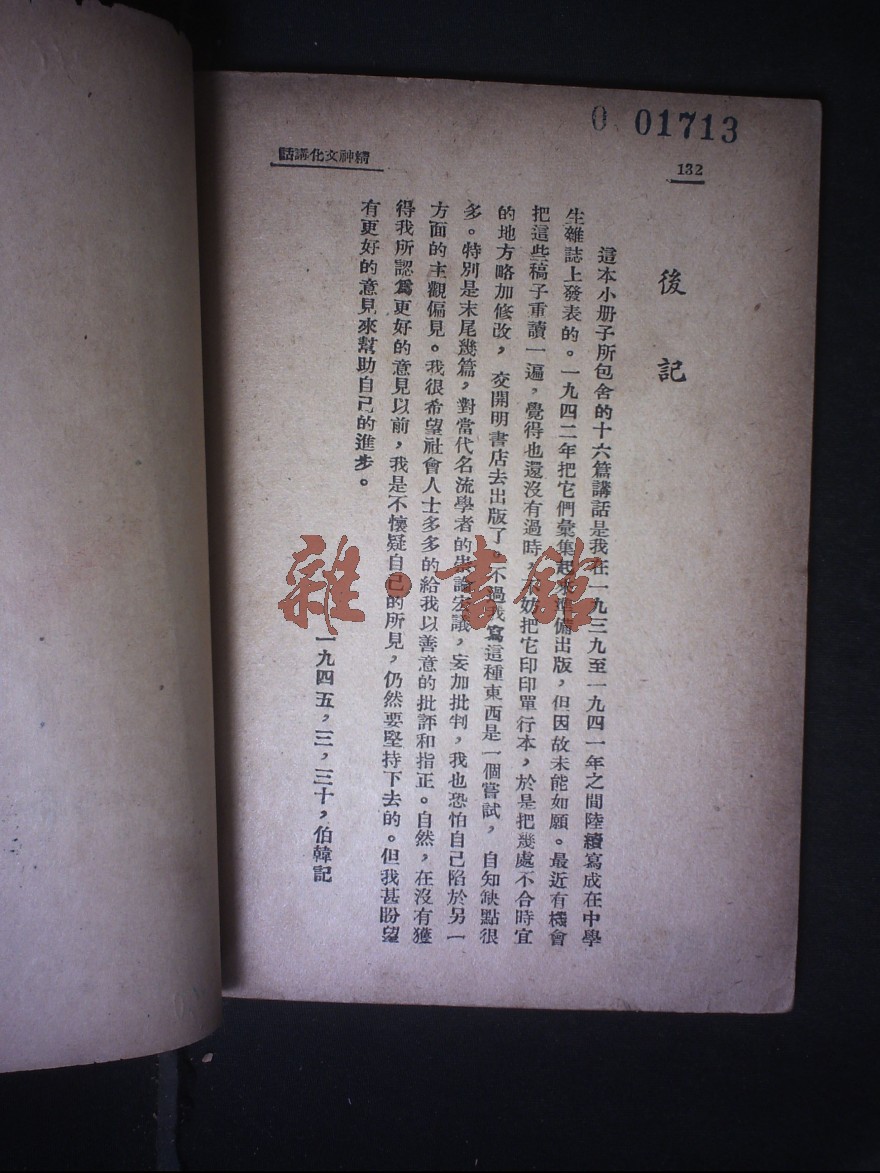 0 01713
132
精神文化講話
後記
這本小册子所包含的十六篇講話是我在一九三九至一九四一年之間陸續寫成在中學
生雜誌上發表的。一九四二年把它們彙集起來準備出版，但因故未能如願。最近有機會
把這些稿子重讀一遍，覺得也還沒有過時，不妨把它印印單行本，於是把幾處不合時宜
的地方略加修改，交開明書店去出版了。不過我寫這種東西是一個嘗試，自知缺點很
多。特別是末尾幾篇，對當代名流學者的崇論宏議，妄加批判，我也恐怕自己陷於另一
方面的主觀偏見。我很希望社會人士多多的給我以善意的批評和指正。自然，在沒有獲
得我所認爲更好的意見以前，我是不懷疑自己的所見，仍然要堅持下去的。但我甚盼望
有更好的意見來幫助自己的進步。
一九四五，三，三十，伯韓記
雜·書館